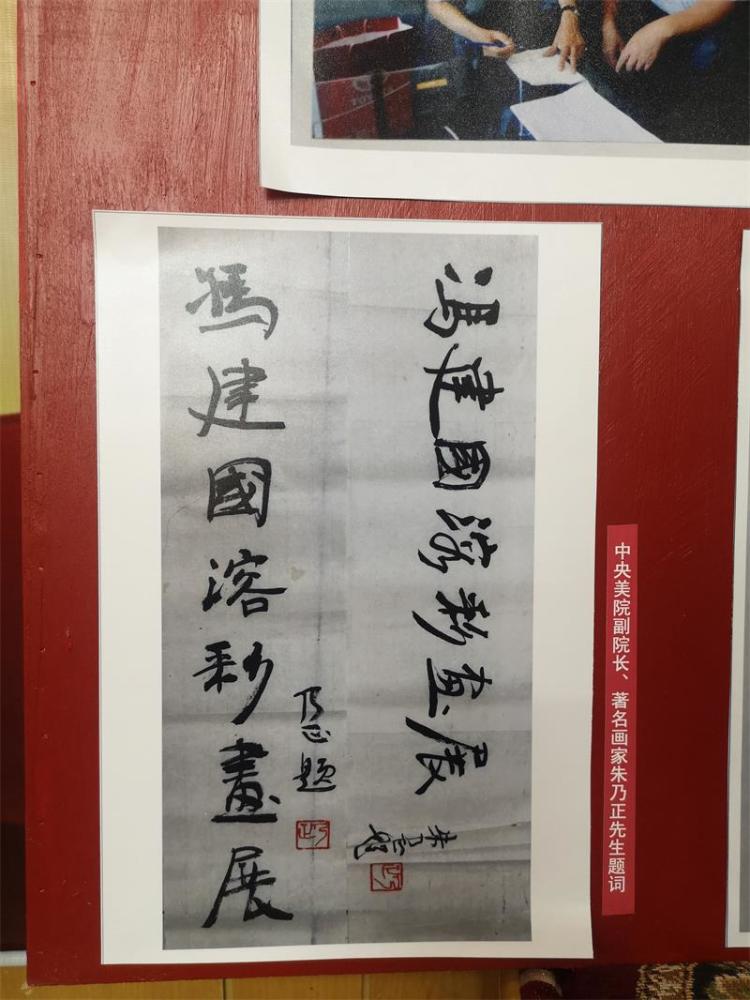 馮建國溶彩畫展
乃正題
冯建國溶彩畫展
朱乃正題
中央美院副院长、著名画家朱乃正先生题词